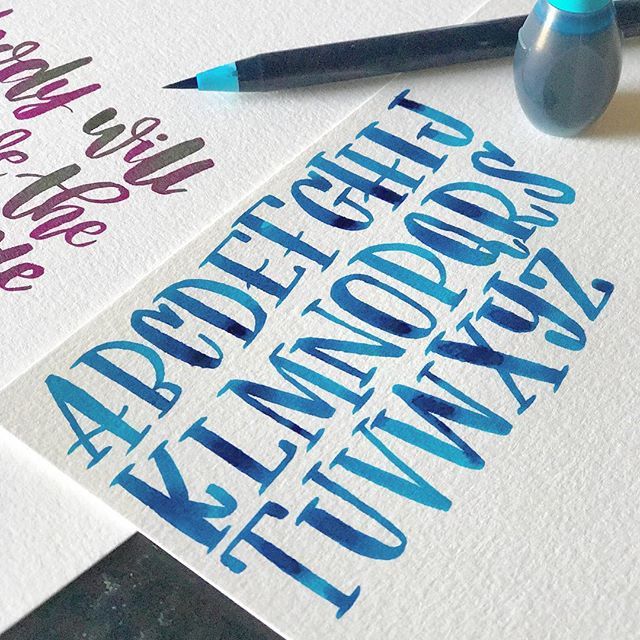 will
the
ABCDEFGHIJ
KLMNOPQRS
TUVWXYZ